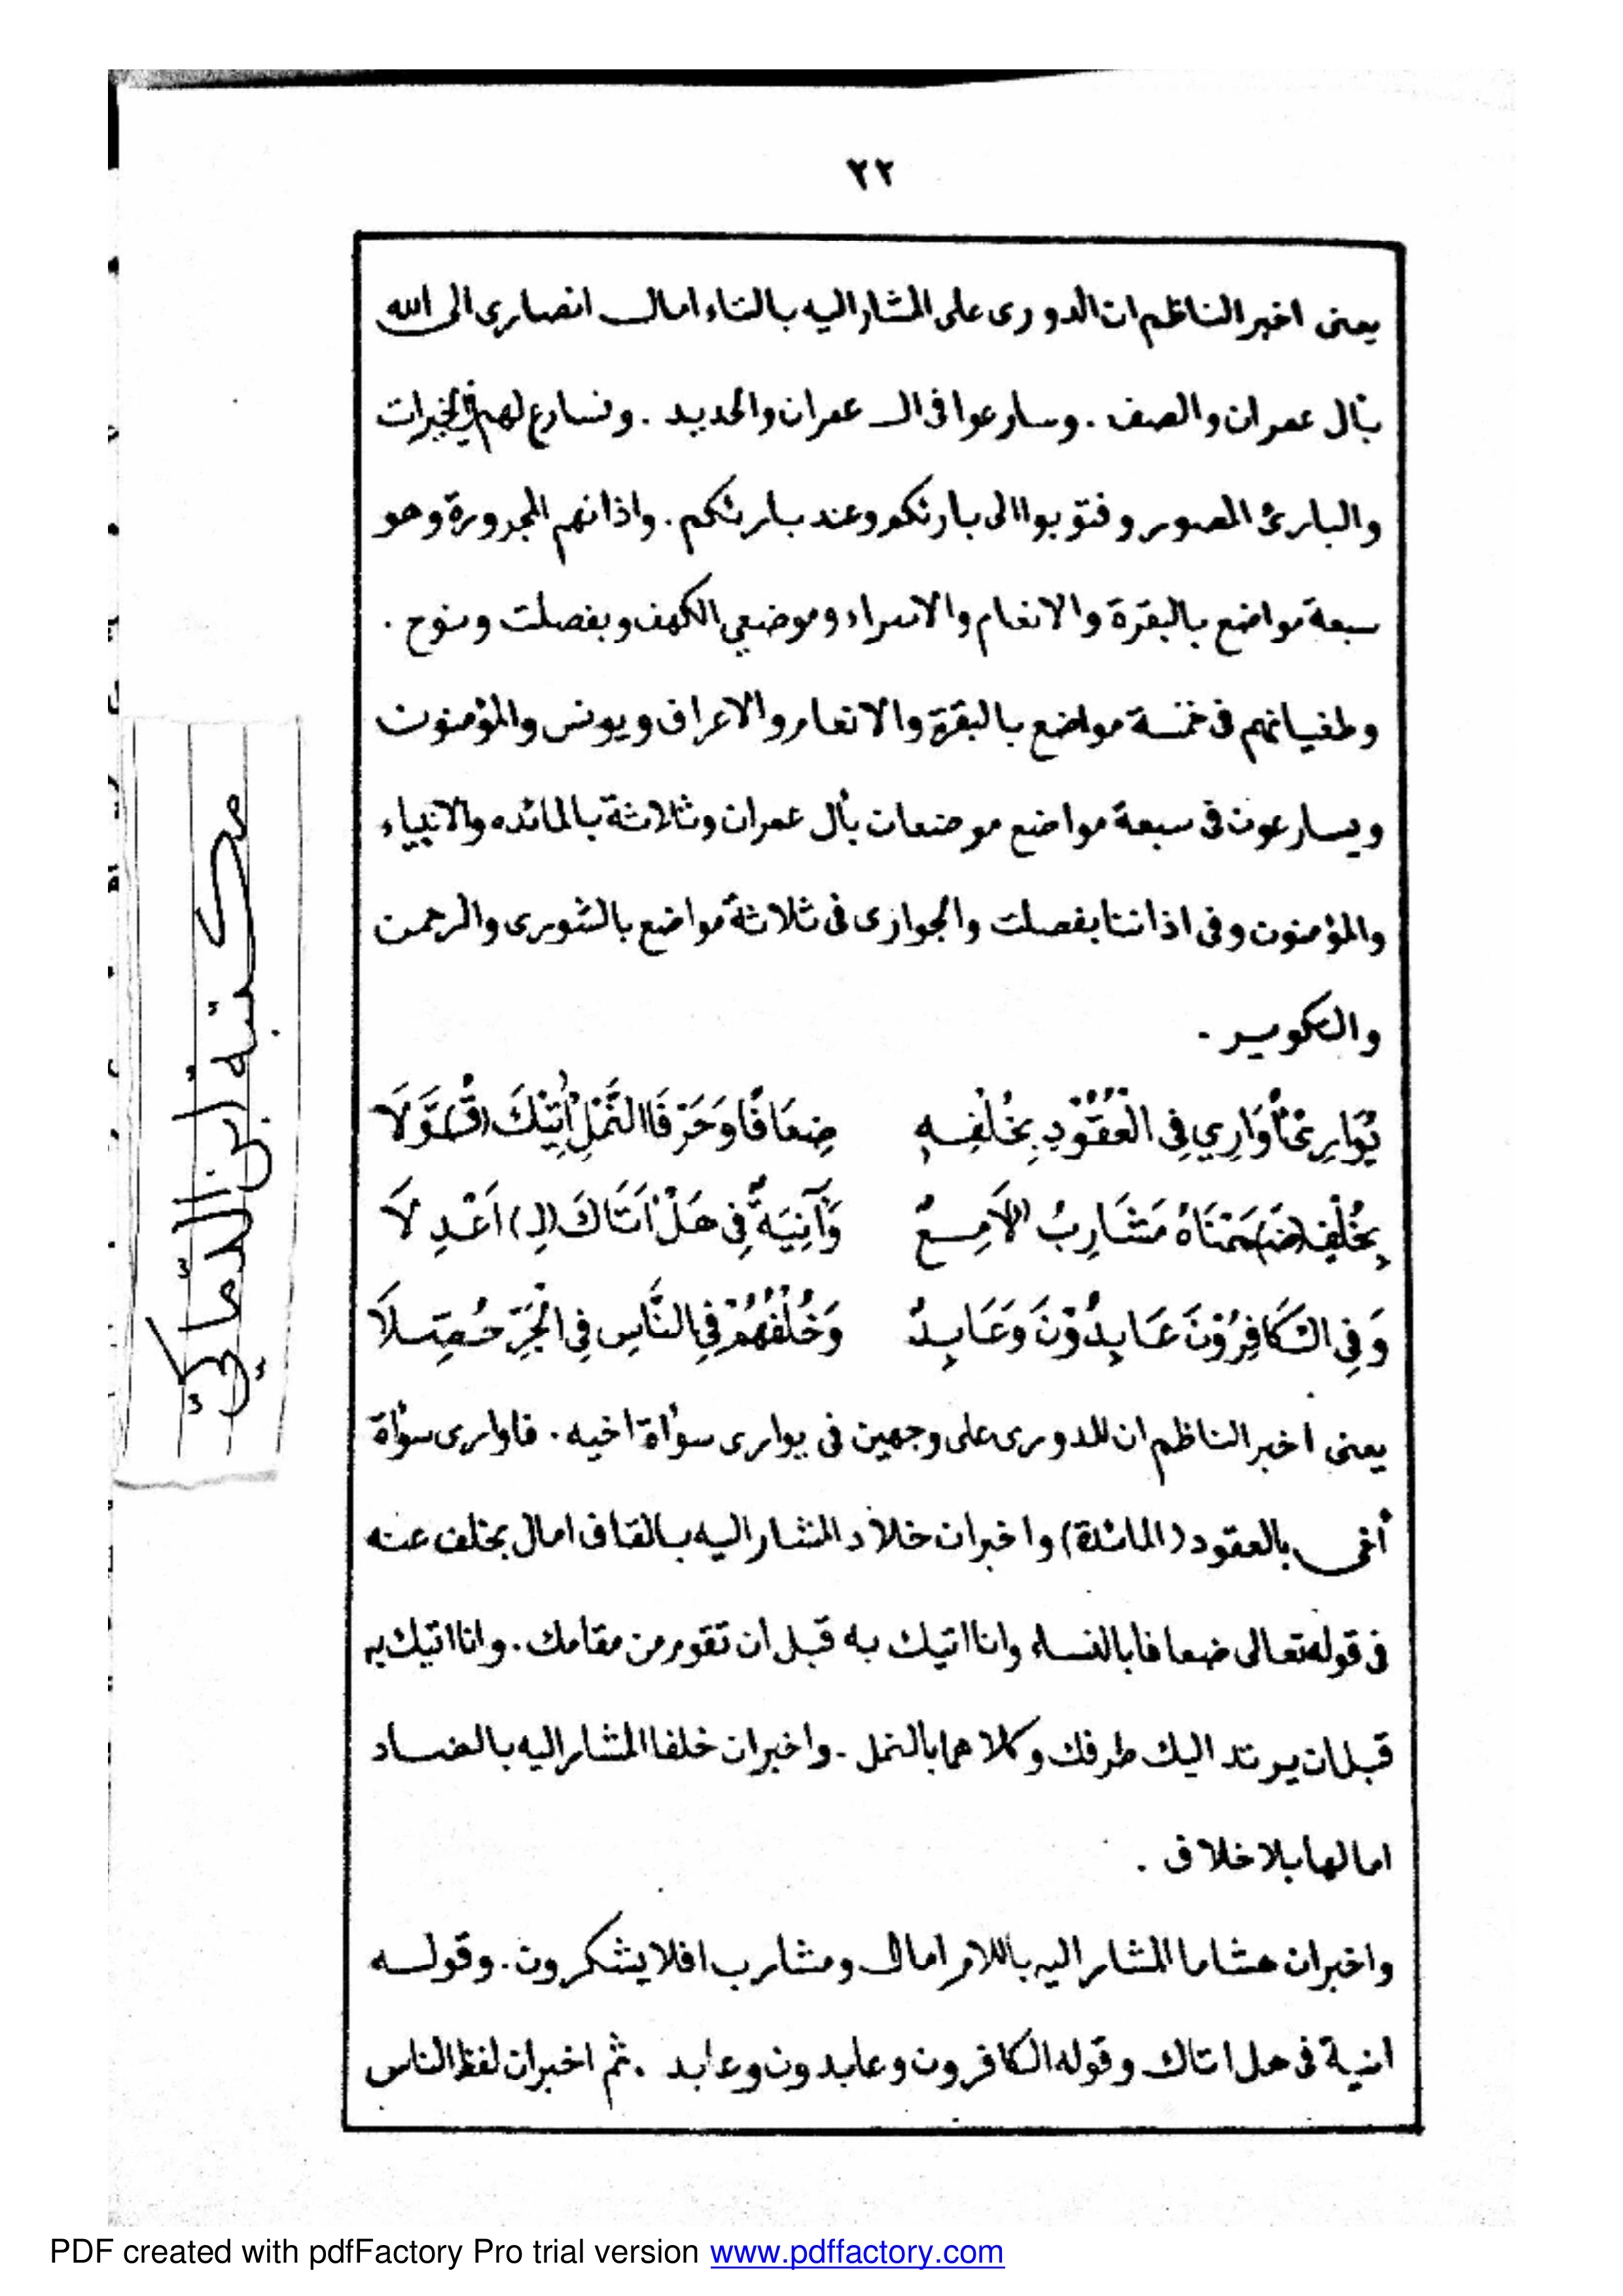 ٢٢
يعنى اخبر الناظم ان الدورى على المشار اليه بالتاء امال انصارى الى الله
بآل عمران والصف . وسارعوا فى ال عمران والحديد . ونسارع لهم فى الخيرات
والبارئ المصور وفتوبوا الى بارئكم وعند بارئكم . واذانهم المجرورة وهو
سبعة مواضع بالبقرة والانعام والاسراء وموضعى الكهف وبفصلت ونوح .
وطغيانهم فى خمسة مواضع بالبقرة والانعام والاعراف ويونس والمؤمنون
ويسارعون فى سبعة مواضع موضعان بآل عمران وثلاثة بالمائده والانبياء
والمؤمنون وفى اذاننا بفصلت والجوارى فى ثلاثة مواضع بالشورى والرحمن
والتكوير .
يُوَارِي أُوَارِي فِي الْعُقُودِ بِخُلْفِهِ ضِعَافًا وَحَرْفَا النَّمْلِ آتِيْكَ (قَـ)ـوَّلَا
بِخُلْفٍ (ضَـ)ـمَمْنَاهُ مَشَارِبُ لَامِعٌ وَآنِيَةٌ فِى هَلْ اَتَاكَ (لِـ) اَعْدِلَا
وَفِى الْكَافِرُوْنَ عَابِدُوْنَ وَعَابِدٌ وَخُلْفُهُمْ فِي النَّاسِ فِي الْجَرِّ حُصِّلَا
يعنى اخبر الناظم ان للدورى على وجهين فى يوارى سوأة اخيه . فاوارى سوأة
أخى بالعقود (المائدة) واخبر ان خلاد المشار اليه بالقاف امال بخلف عنه
فى قوله تعالى ضعافا بالنساء وانا اتيك به قبل ان تقوم من مقامك . وانا اتيك به
قبل ان يرتد اليك طرفك وكلاهما بالنمل . واخبر ان خلفا المشار اليه بالضاد
امالها بلا خلاف .
واخبر ان هشاما المشار اليه باللام امال ومشارب افلا يشكرون . وقوله
انية فى هل اتاك وقوله الكافرون وعابدون وعابد . ثم اخبر ان لفظ الناس
مكتبة ابن الدّعاكيّ
PDF created with pdfFactory Pro trial version www.pdffactory.com